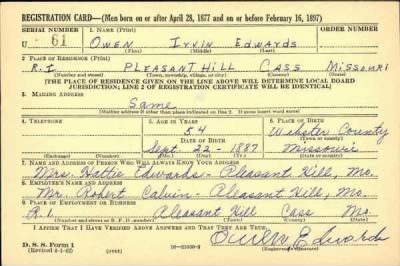 REGISTRATION CARD—(Men born on or after April 28, 1877 and on or before February 16, 1897)
SERIAL NUMBER 1. NAME (Print) ORDER NUMBER
U 61 Owen Irvin Edwards
(First) (Middle) (Last)
2. PLACE OF RESIDENCE (Print)
R.1 PLEASANT HILL CASS MISSOURI
(Number and street) (Town, township, village, or city) (County) (State)
(THE PLACE OF RESIDENCE GIVEN ON THE LINE ABOVE WILL DETERMINE LOCAL BOARD
JURISDICTION; LINE 2 OF REGISTRATION CERTIFICATE WILL BE IDENTICAL)
3. MAILING ADDRESS
Same
(Mailing address if other than place indicated on line 2. If same insert word same)
4. TELEPHONE 5. AGE IN YEARS 6. PLACE OF BIRTH
54 Webster County
DATE OF BIRTH (Town or county)
Sept. 22 - 1887 Missouri
(Exchange) (Number) (Mo.) (Day) (Yr.) (State or country)
7. NAME AND ADDRESS OF PERSON WHO WILL ALWAYS KNOW YOUR ADDRESS
Mrs. Hattie Edwards - Pleasant Hill, Mo.
8. EMPLOYER'S NAME AND ADDRESS
Mr. Robert Calvin - Pleasant Hill, Mo.
9. PLACE OF EMPLOYMENT OR BUSINESS
R.1. Pleasant Hill Cass Mo.
(Number and street or R. F. D. number) (Town) (County) (State)
I AFFIRM THAT I HAVE VERIFIED ABOVE ANSWERS AND THAT THEY ARE TRUE.
D. S. S. Form 1 Owen Edwards
(Revised 4-1-42) (over) (Registrant's signature)